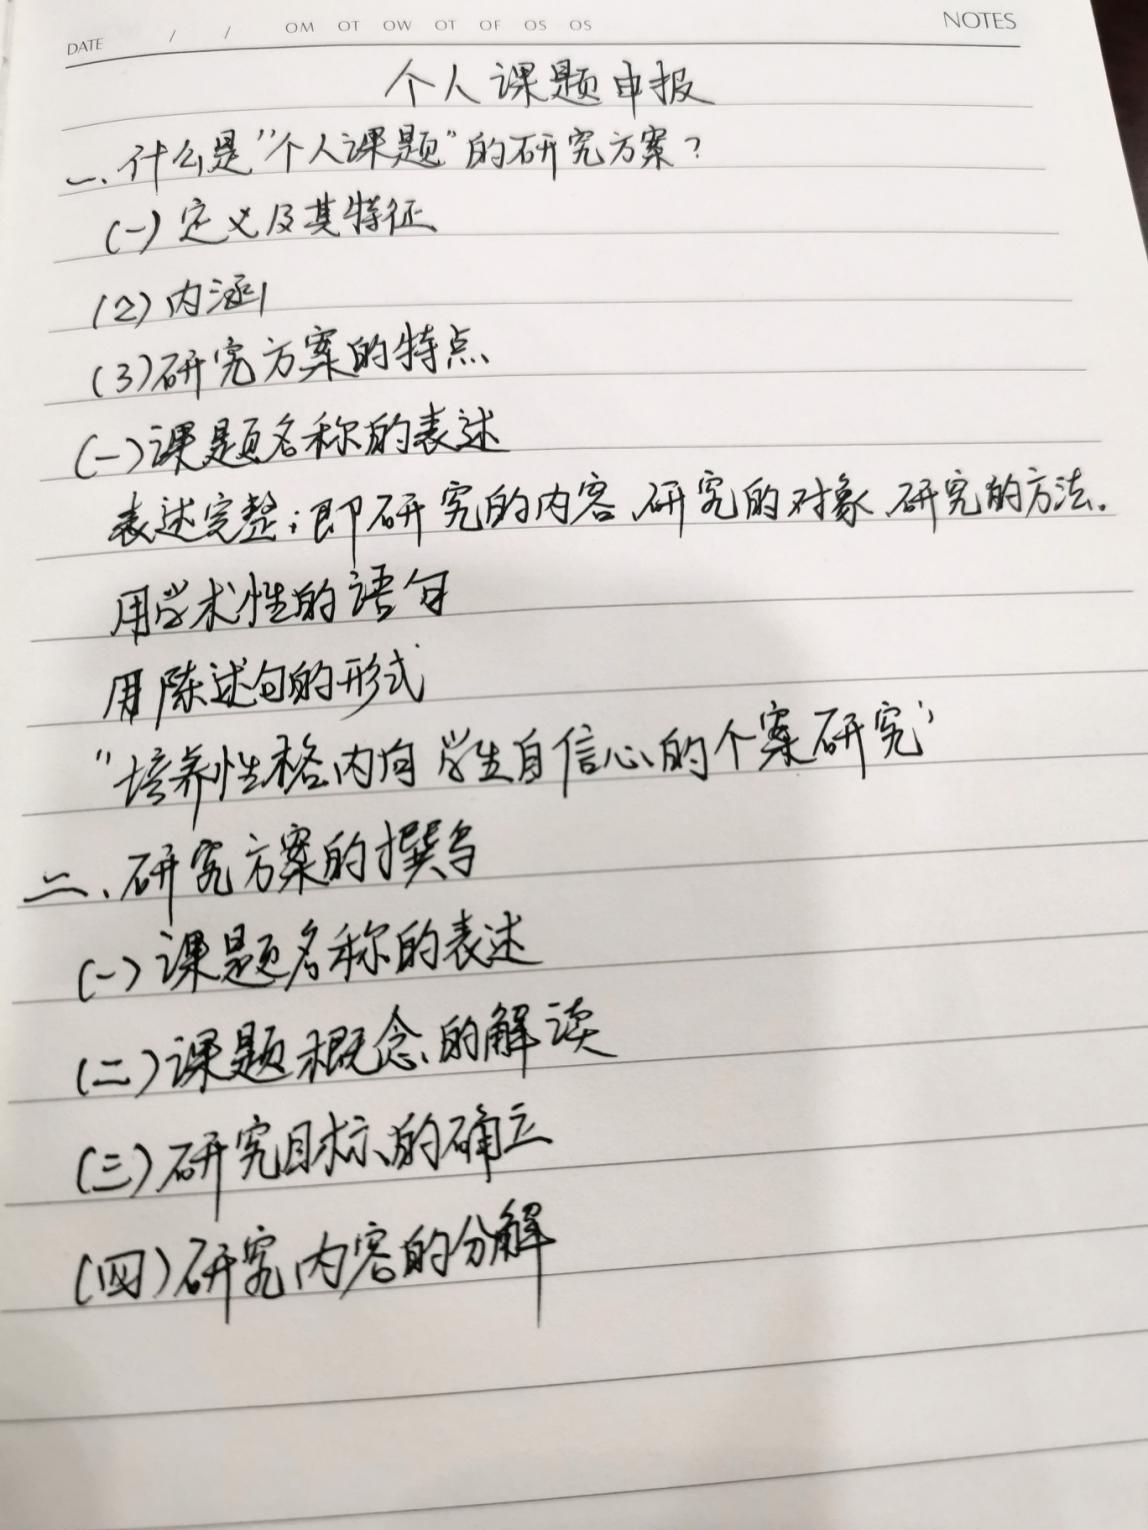 DATE / / OM OT OW OT OF OS OS NOTES
个人课题申报
一、什么是"个人课题"的研究方案？
(一) 定义及其特征
(2) 内涵
(3) 研究方案的特点
(一) 课题名称的表述
表述完整：即研究的内容、研究的对象、研究的方法.
用学术性的语句
用陈述句的形式
"培养性格内向学生自信心的个案研究"
二、研究方案的撰写
(一) 课题名称的表述
(二) 课题概念的解读
(三) 研究目标的确立
(四) 研究内容的分解